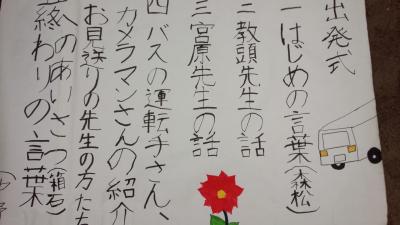 出発式
一はじめの言葉(森松)
二教頭先生の話
三宮原先生の話
四バスの運転手さん、
カメラマンさんの紹介
お見送りの先生の方た
へのあいさつ(箱石)
終わりの言葉